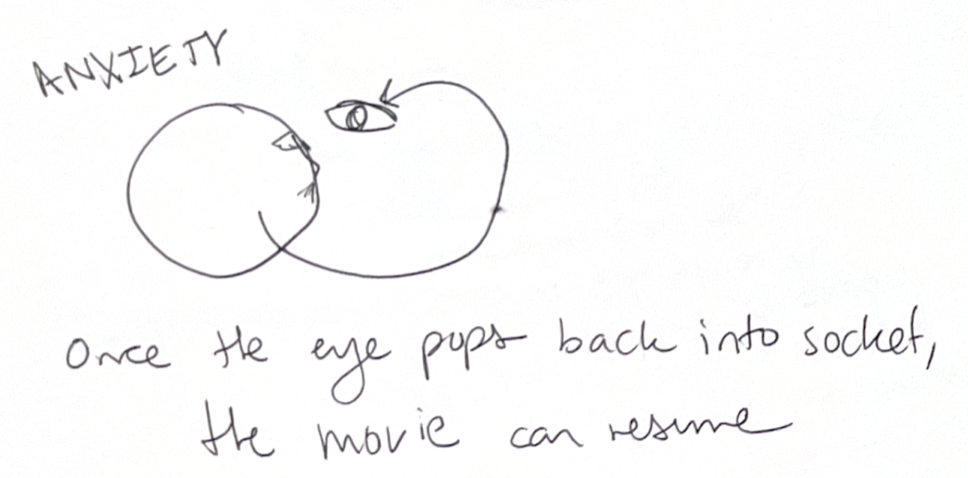 ANXIETY
Once the eye pops back into socket,
the movie can resume